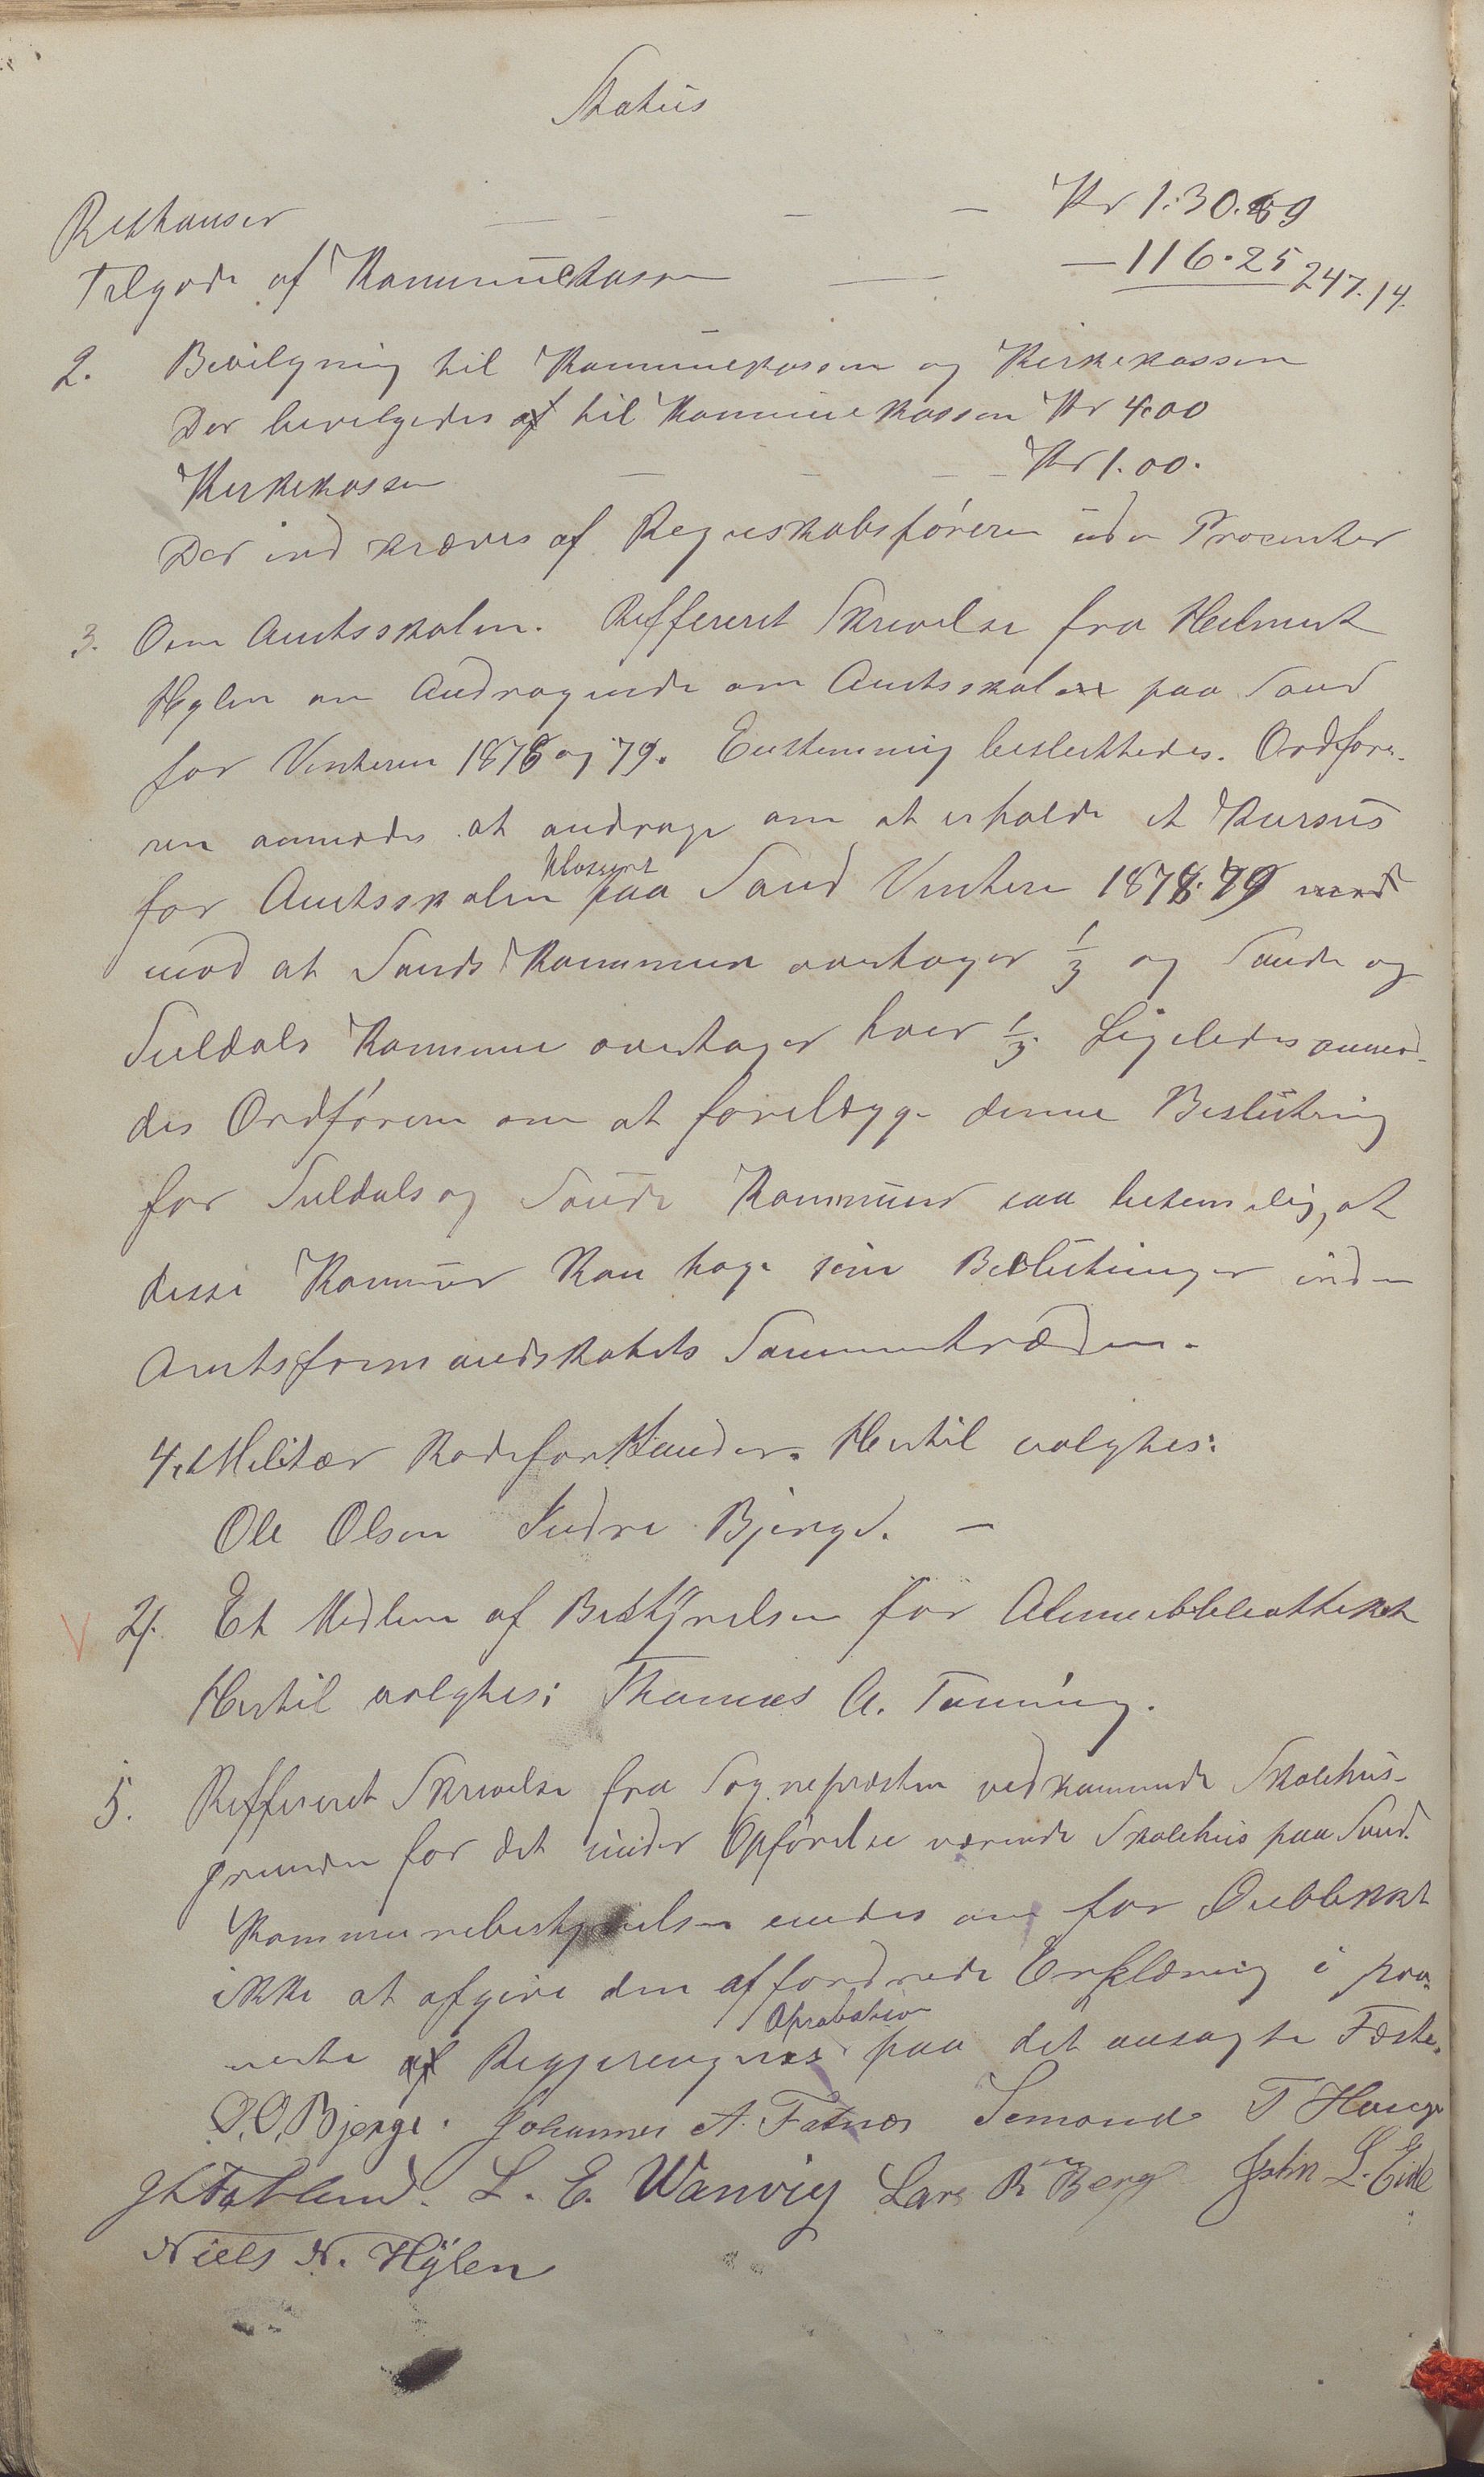 Status
Resthauser — — — — Kr 1.30.89
Tilgode af Kommunekassen — — 116.25 247.14.
2. Bevilgning til Kommunekassen og Kirkekassen
Der bevilgedes af til Kommunekassen Kr 4.00
Kirkekassen — — — Kr 1.00.
Der ind kræves af Regnskabsføreren uden Procenter
3. Om Amtsskolen. Reffereret Skrivelse fra Helmert
Hylen om Andragende om Amtsskolen paa Sand
for Vinteren 1878 og 79. Enstemmig besluttedes. Ordføre-
ren anmodes at andrage om at erholde et Kursus
for Amtsskolen paa Sand Vinteren 1878.79 med
mod at Sands Kommune overtager 1/3 og Saude og
Suldals Kommune overtager hver 1/3. Ligeledes anmod-
des Ordføreren om at forelægge denne Beslutning
for Suldals og Saude Kommuner saa betimelig, at
disse Kommuner kan tage sine Beslutninger inden
Amtsformandskabets Sammentræden.
4, Militær Rodeforstander. Hertil valgtes:
Ole Olsen Indre Bjerge. —
V 4. Et Medlem af Bestyrelsen for Almuebibliotheket
Hertil valgtes: Thomas A. Tanning.
5. Reffereret Skrivelse fra Sognepræsten vedkommende Skolehus-
grunden for det under Opførelse værende Skolehus paa Sand.
Kommunebestyrelsen endes om for Øieblikket
ikke at afgive den affordrede Erklæring i paa-
vente af Regjeringens Aprobation paa det ansøgte Fæste.
O. O. Bjerge. Johannes A. Fatnes Simond T Hauge
Gh Tatland. L. E. Wanvig Lars R Berg John L. Eide
Niels N. Hÿlen